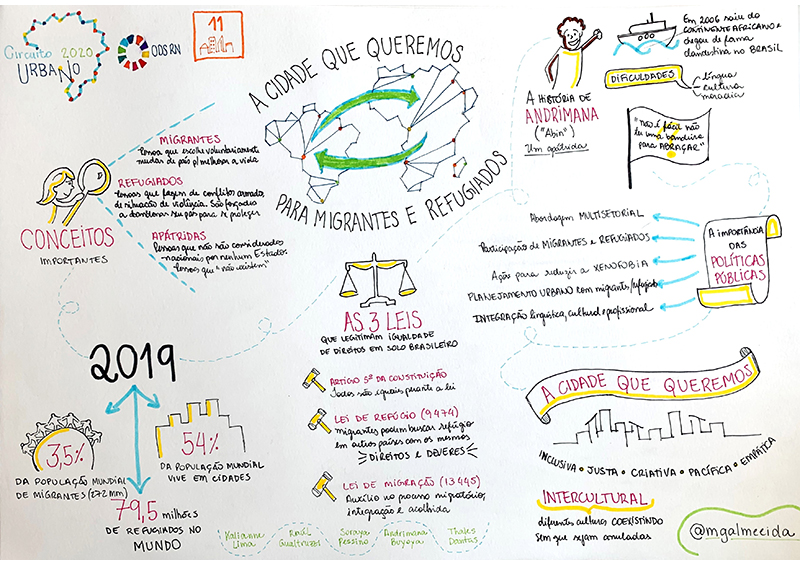 Circuito 2020
URBANO
ODS RN
11
A CIDADE QUE QUEREMOS
PARA MIGRANTES E REFUGIADOS
CONCEITOS
IMPORTANTES
MIGRANTES
Pessoas que escolhe voluntariamente
mudar de país p/melhorar a vida
REFUGIADOS
Pessoas que fogem de conflitos armados,
de situação de violência. São forçados
a abandonar seu país para se proteger
APÁTRIDAS
Pessoas que não são considerados
nacionais por nenhum Estado
Pessoas que "não existem"
A HISTÓRIA DE
ANDRIMANA
("Abin")
Um apátrida
Em 2006 saiu do
CONTINENTE AFRICANO e
chegou de forma
clandestina no BRASIL
DIFICULDADES
língua
cultura
moradia
"Não é fácil não
ter uma bandeira
para ABRAÇAR"
A IMPORTÂNCIA
DAS
POLÍTICAS
PÚBLICAS
Abordagem MULTISETORIAL
Participação de MIGRANTES e REFUGIADOS
Ação para reduzir a XENOFOBIA
PLANEJAMENTO URBANO com migrants/refugiados
INTEGRAÇÃO linguística, cultural e profissional
AS 3 LEIS
QUE LEGITIMAM IGUALDADE
DE DIREITOS EM SOLO BRASILEIRO
ARTIGO 5º DA CONSTITUIÇÃO
Todos são iguais perante a lei
LEI DE REFÚGIO (9474)
migrantes podem buscar refúgio
em outros países com os mesmos
DIREITOS E DEVERES
LEI DE MIGRAÇÃO (13445)
Auxílio no processo migratório,
integração e acolhida
2019
3,5%
DA POPULAÇÃO MUNDIAL
DE MIGRANTES (272mm)
54%
DA POPULAÇÃO MUNDIAL
VIVE EM CIDADES
79,5 milhões
DE REFUGIADOS NO
MUNDO
A CIDADE QUE QUEREMOS
INCLUSIVA • JUSTA • CRIATIVA • PACÍFICA • EMPÁTICA
INTERCULTURAL
diferentes culturas COEXISTINDO
sem que sejam anuladas
Kalianne
Lima
Raúl
Gualtruzzi
Soraya
Pessino
Andrimana
Buyoya
Thales
Dantas
@mgalmecida